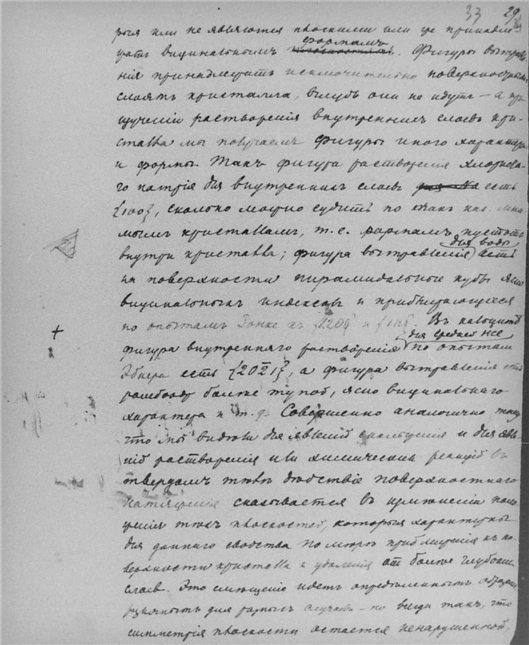 33 29
рыя или не являются плоскими или же принадле-
жатъ вицинальнымъ формамъ. Фигуры вытравле-
нія принадлежатъ исключительно поверхностнымъ
слоямъ кристалла, вглубь они не идутъ – а при
изученіи растворенія внутреннихъ слоевъ кри-
сталла мы получаемъ фигуры иного характера
и формы. Такъ фигура растворенія хлористо-
го натрія для внутреннихъ слоевъ есть
{100}, сколько можно судить по такъ наз.
мымъ кристалламъ, т.е. формамъ пустотъ
внутри кристалла; фигура вытравленія для воды есть
на поверхности пирамидальные кубы ясно
вицинальныхъ индексовъ и приближающихся
по опытамъ къ {120} и
фигура внутренняго растворенія для средней по опытамъ
Эбнера есть {202̄1}, а фигура вытравленія есть
ромбоэдръ болѣе тупой, ясно вицинальнаго
характера и т.д. Совершенно аналогично тому
что мы видѣли для явленій скольженія и для явле-
ній растворенія или химическихъ реакцій въ
твердомъ тѣлѣ дѣйствіе поверхностнаго
натяженія сказывается въ измѣненіи поло-
женія тѣхъ плоскостей, которыя характерны
для даннаго свойства по мѣрѣ приближенія къ по-
верхности кристалла и удаленія отъ болѣе глубокихъ
слоевъ. Это смѣщеніе идетъ опредѣленнымъ образомъ
для разныхъ случаевъ – но всегда такъ, что
симметрія плоскости остается ненарушенной,